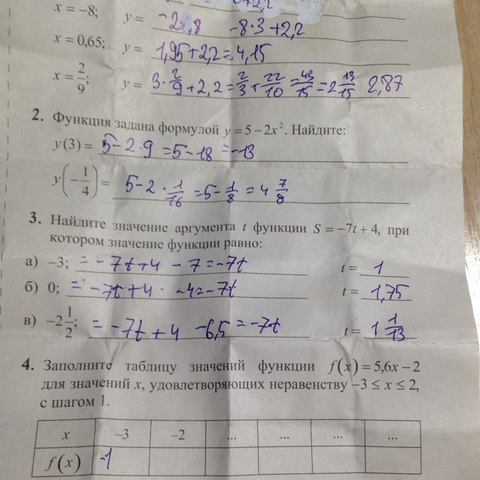 x = −8; y = −21,8 −8·3+2,2
x = 0,65; y = 1,95+2,2=4,15
x = 2/9; y = 3·2/9+2,2=2/3+22/10=43/15=2 13/15 2,87
2. Функция задана формулой y = 5 − 2x². Найдите:
y(3) = 5−2·9=5−18=−13
y(−1/4) = 5−2·1/16=5−1/8=4 7/8
3. Найдите значение аргумента t функции S = −7t + 4, при
котором значение функции равно:
а) −3; =−7t+4 −7=−7t t = 1
б) 0; =−7t+4 −4=−7t t = 1,75
в) −2 1/2; =−7t+4 −6,5=−7t t = 1 1/13
4. Заполните таблицу значений функции f(x) = 5,6x − 2
для значений x, удовлетворяющих неравенству −3 ≤ x ≤ 2,
с шагом 1.
x −3 −2 ... ... ... ...
f(x) −1